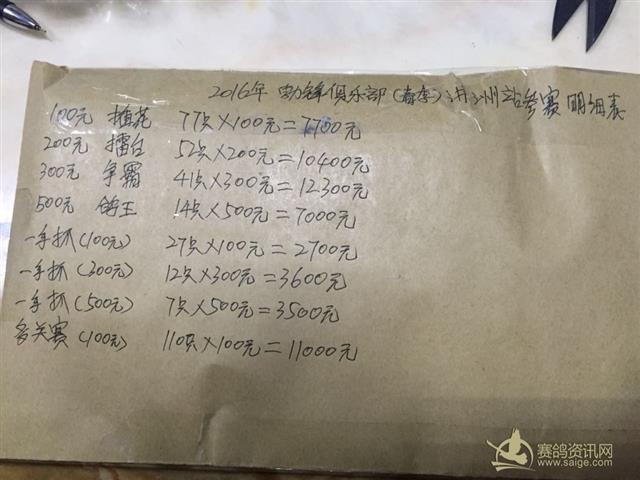 2016年 劲锋俱乐部(春季)荆州站参赛明细表
100元 插花 77只×100元=7700元
200元 擂台 52只×200元=10400元
300元 争霸 41只×300元=12300元
500元 鸽王 14只×500元=7000元
一手抓(100元) 27只×100元=2700元
一手抓(300元) 12只×300元=3600元
一手抓(500元) 7只×500元=3500元
多关赛(100元) 110只×100元=11000元
赛鸽资讯网
www.saige.com